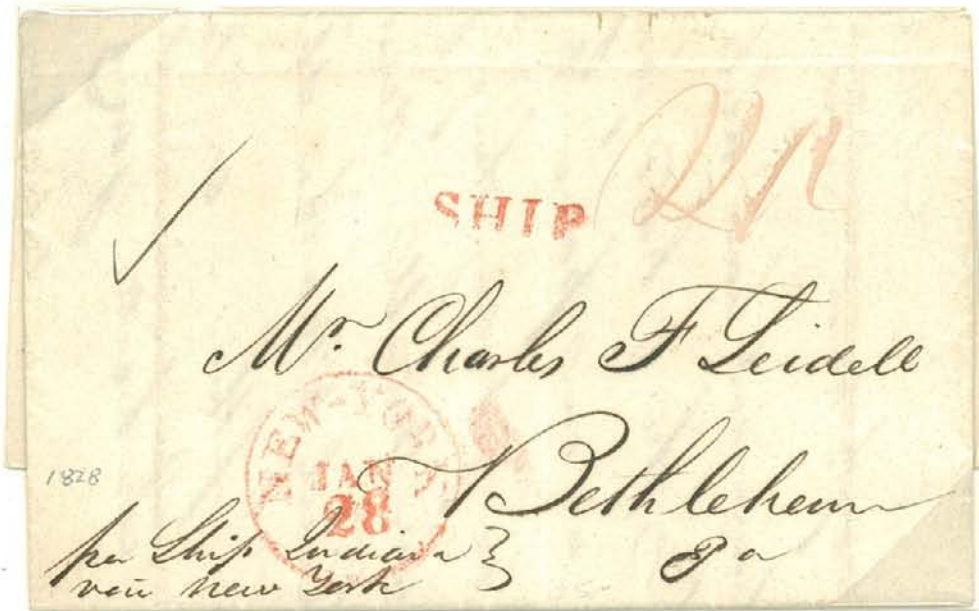 SHIP
Mr. Charles F Leidell
NEW-YORK
JAN
28
Bethlehem
Pa
1828
per Ship Indiana
New York